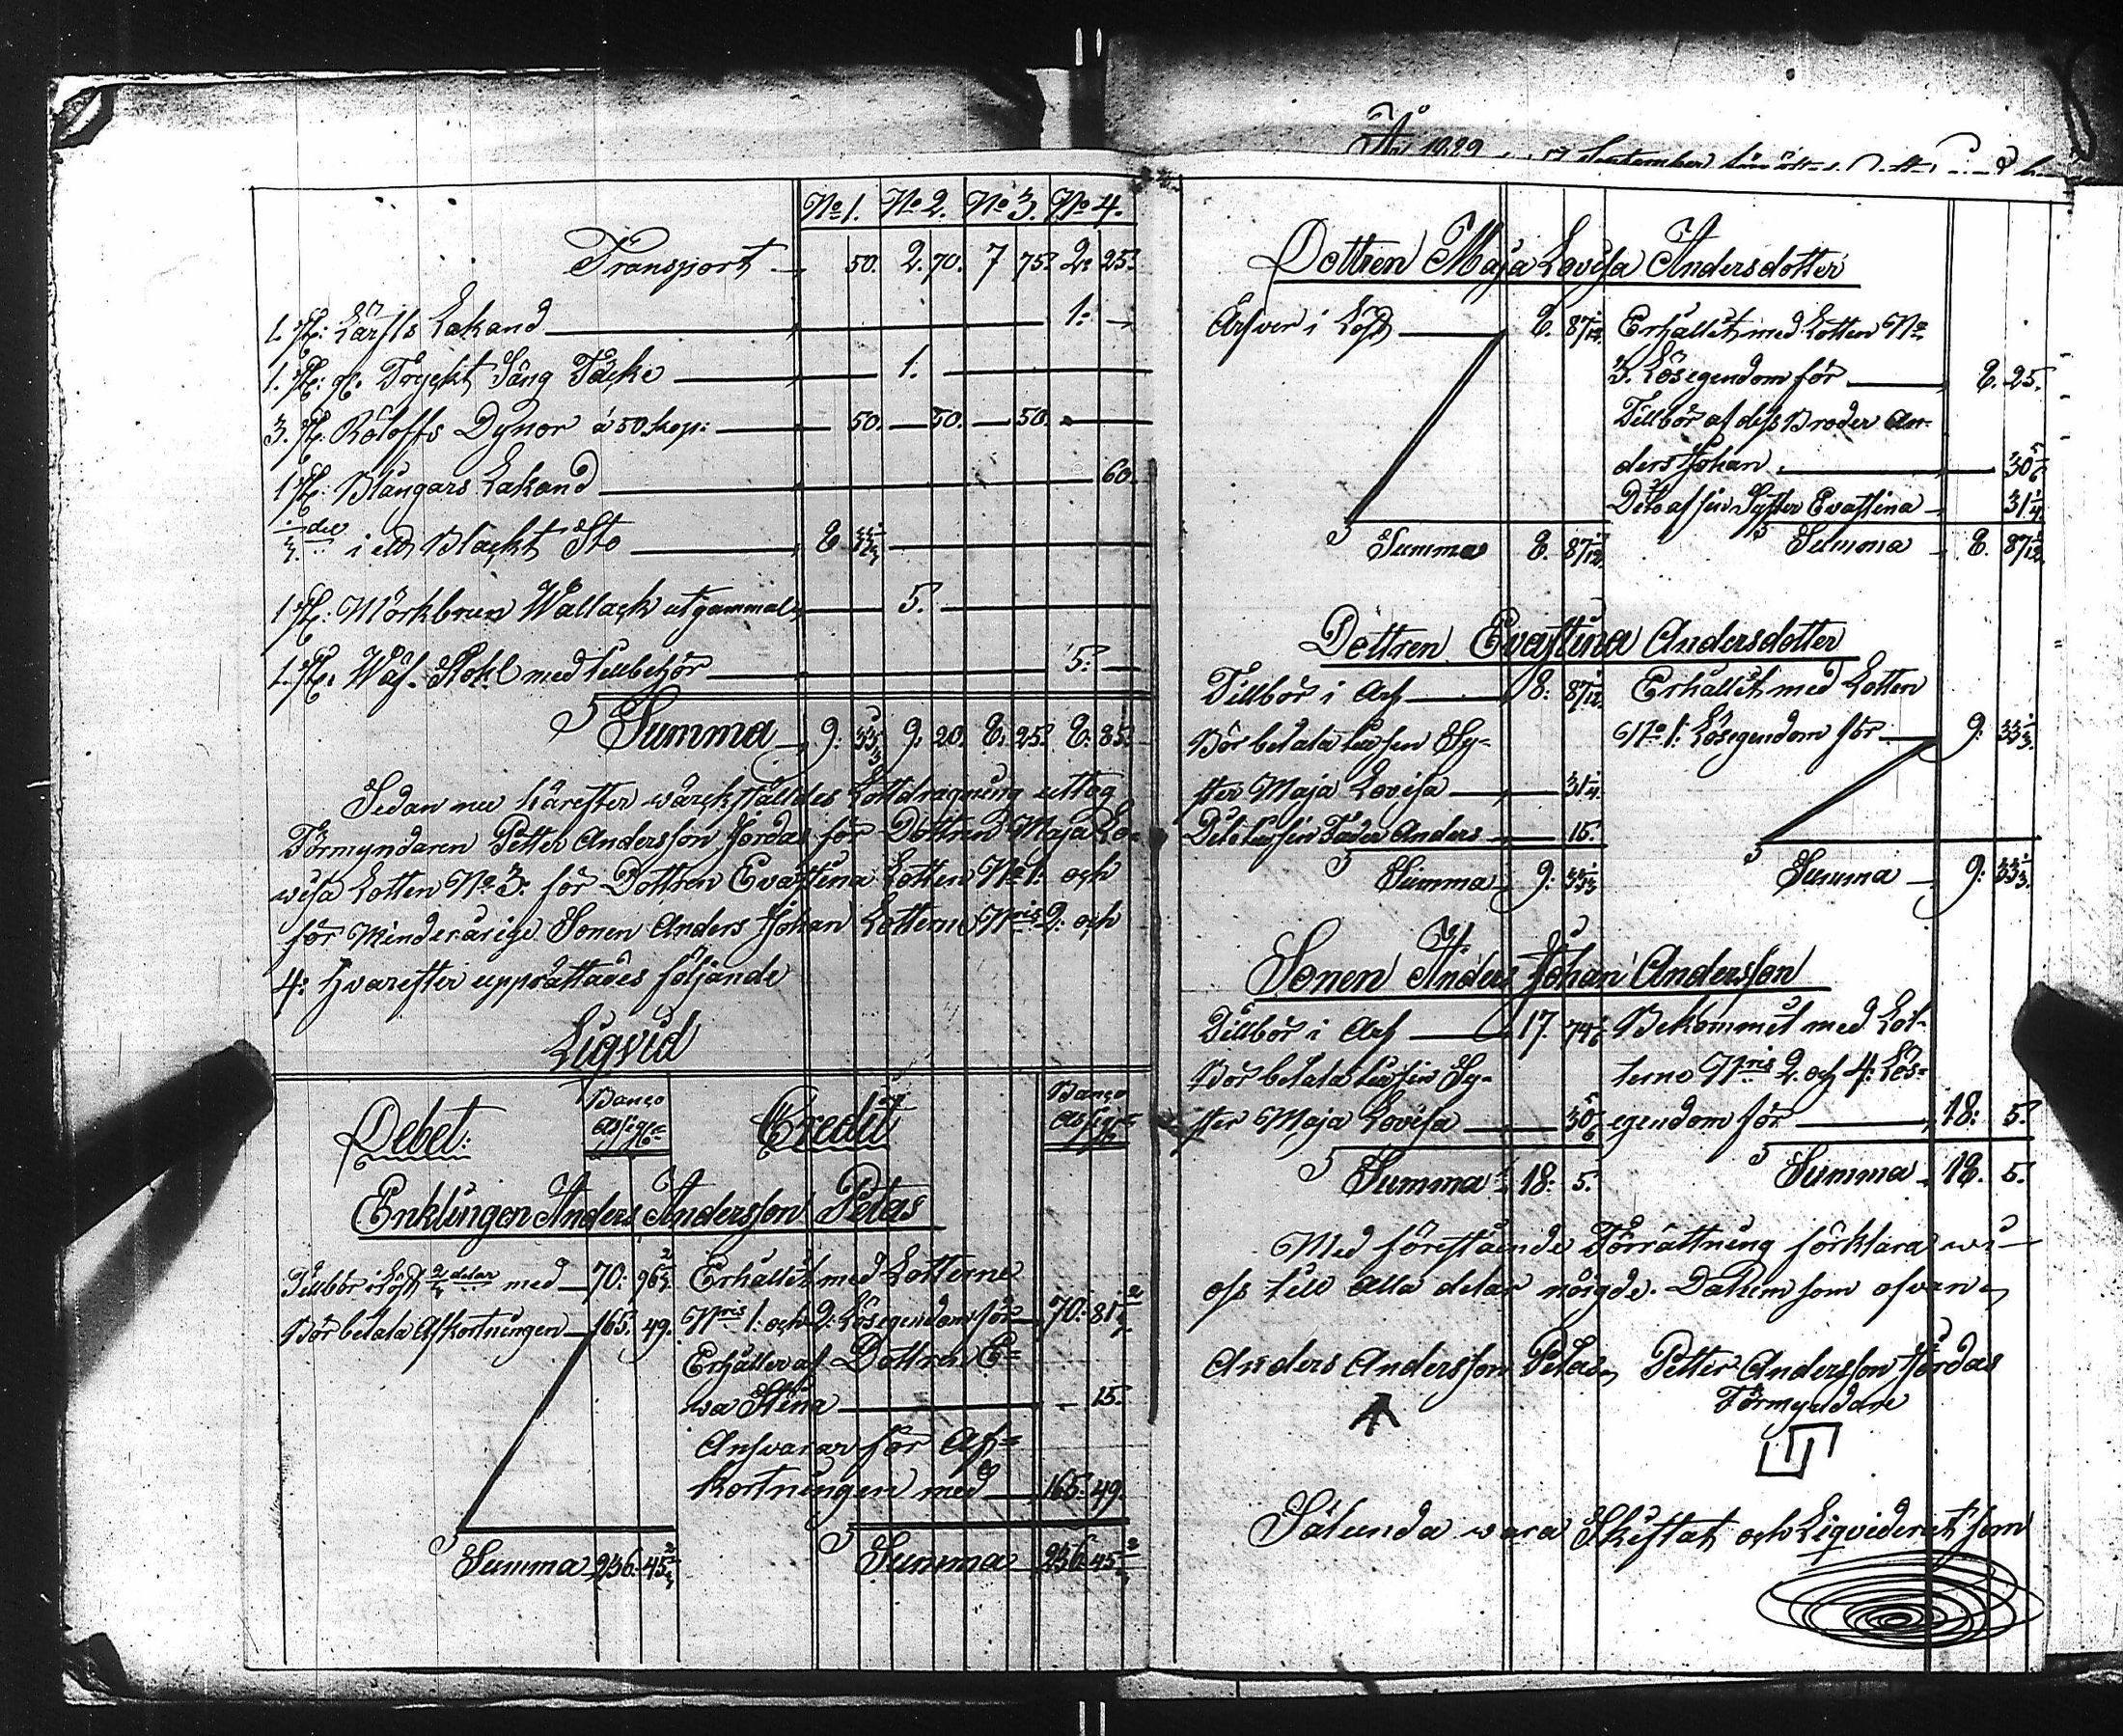 År 1829
September
No 1. No 2. No 3. No 4.
Transport 50. 2. 70. 7 75. 2. 25.
1. st: Lärfts Lakand 1: —
1. st: gl. Tryckt Säng Täcke 1.
3. st: Råloffs Dynor á 50. kop: 50. 50. 50.
1 st: Blångars Lakand 60.
1/3 del i ett Blackt Sto 8. 33 1/3
1 st: Mörkbrun Wallack utgammal 5.
1. st: Wäf Stohl med tillbehör 5: —
Summa 9: 33 1/3 9: 20. 8: 25. 8: 85.
Sedan nu härefter wärckställdes Lottdragning uttog
Förmyndaren Petter Andersson Hördas för Dottren Maja Lo-
wisa Lotten No 3: för Dottren Evastina Lotten No 1: och
för Minderårige Sonen Anders Johan Lotterne Nris 2: och
4: Hvarefter upprättades följande
Liqvid
Debet: Banco Assign. Credit Banco Assign.
Enklingen Anders Andersson Petas
Tillbör i Löst 2/3 delar med 70: 96 2/3 Erhållit med Lotterne
Bör betala Afkortningen 165. 49. Nris 1: och 2: Lösegendom för 70: 81 2/3
Erhåller af Dottren E=
va Stina — 15.
Ansvarar för Af=
kortningen med 165: 49.
Summa 236. 45 2/3 Summa 236. 45 2/3
Dottren Maja Lovisa Andersdotter
Ärfver i Löst 8. 87 1/12. Erhållit med Lotten No
3. Lösegendom för 8. 25.
Tillbör af dess Broder An-
ders Johan 30 5/6
Dito af sin Syster Evastina 31 1/4.
Summa 8. 87 1/12. Summa 8. 87 1/12.
Dottren Evastina Andersdotter
Tillbör i Arf 8: 87 1/12. Erhållit med Lotten
Bör betala till sin Sy= No 1: Lösegendom för 9: 33 1/3.
ster Maja Lovisa 31 1/4.
Dito till sin Fader Anders 15.
Summa 9: 33 1/3 Summa 9: 33 1/3.
Sonen Anders Johan Andersson
Tillbör i Arf 17. 74 1/6 Bekommit med Lot-
Bör betala till sin Sy- terne Nris 2. och 4: Lös=
ster Maja Lovisa 30 5/6 egendom för 18: 5.
Summa 18: 5. Summa 18. 5.
Med förestående Förrättning förklara wi
oss till alla delar nöigde. Datum som ofvan
Anders Andersson Petas Petter Andersson Hördas
Förmyndare
Sålunda wara Skiftat och Liqviderat som